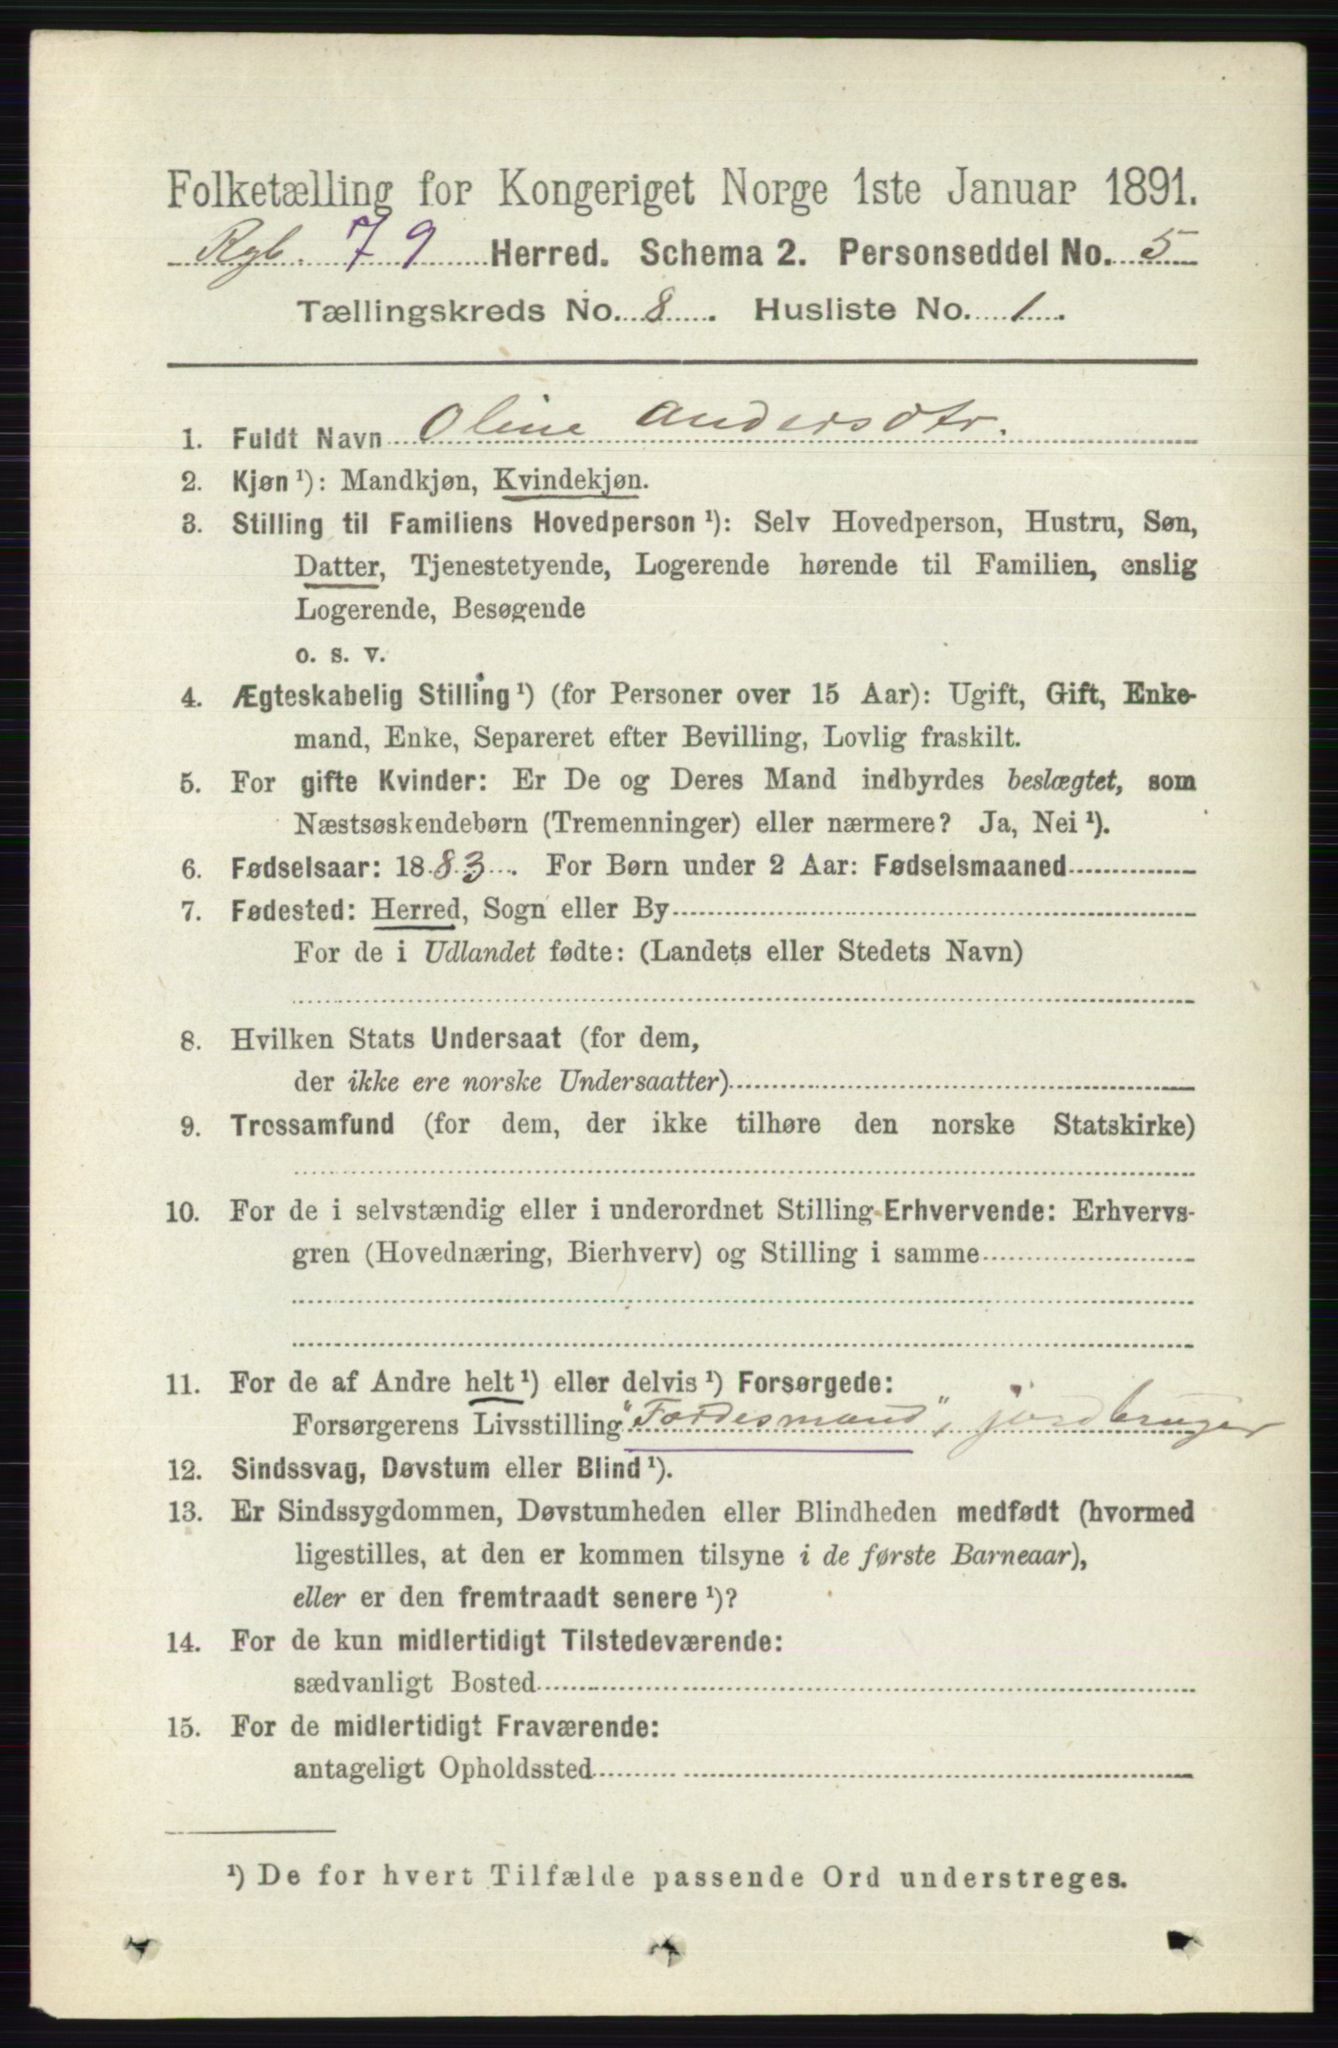 Folketælling for Kongeriget Norge 1ste Januar 1891.
Rgb. 79 Herred. Schema 2. Personseddel No. 5
Tællingskreds No. 8. Husliste No. 1.
1. Fuldt Navn Oline Andersdtr.
2. Kjøn ¹): Mandkjøn, Kvindekjøn.
3. Stilling til Familiens Hovedperson ¹): Selv Hovedperson, Hustru, Søn,
Datter, Tjenestetyende, Logerende hørende til Familien, enslig
Logerende, Besøgende
o. s. v.
4. Ægteskabelig Stilling ¹) (for Personer over 15 Aar): Ugift, Gift, Enke-
mand, Enke, Separeret efter Bevilling, Lovlig fraskilt.
5. For gifte Kvinder: Er De og Deres Mand indbyrdes beslægtet, som
Næstsøskendebørn (Tremenninger) eller nærmere? Ja, Nei ¹).
6. Fødselsaar: 1883. For Børn under 2 Aar: Fødselsmaaned
7. Fødested: Herred, Sogn eller By
For de i Udlandet fødte: (Landets eller Stedets Navn)
8. Hvilken Stats Undersaat (for dem,
der ikke ere norske Undersaatter)
9. Trossamfund (for dem, der ikke tilhøre den norske Statskirke)
10. For de i selvstændig eller i underordnet Stilling Erhvervende: Erhvervs-
gren (Hovednæring, Bierhverv) og Stilling i samme
11. For de af Andre helt ¹) eller delvis ¹) Forsørgede:
Forsørgerens Livsstilling "Fordesmand", jordbruger
12. Sindssvag, Døvstum eller Blind ¹).
13. Er Sindssygdommen, Døvstumheden eller Blindheden medfødt (hvormed
ligestilles, at den er kommen tilsyne i de første Barneaar),
eller er den fremtraadt senere ¹)?
14. For de kun midlertidigt Tilstedeværende:
sædvanligt Bosted
15. For de midlertidigt Fraværende:
antageligt Opholdssted
¹) De for hvert Tilfælde passende Ord understreges.